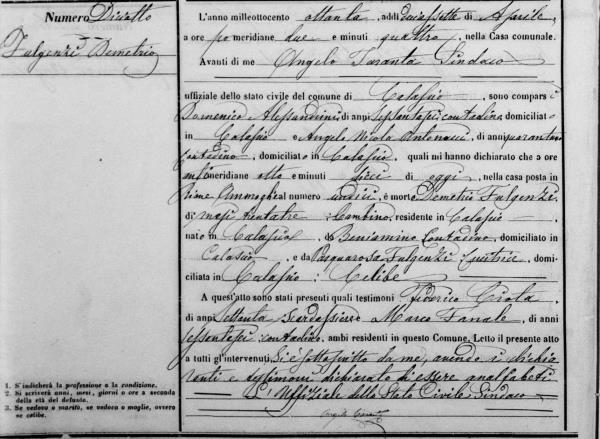 Numero Diciotto
Fulgenzi Demetrio
1. Si indicherà la professione o la condizione.
2. Si scriverà anni, mesi, giorni o ore a seconda
della età del defunto.
3. Se vedovo o marito, se vedova o moglie, ovvero
se celibe.
L'anno milleottocento ottanta, addì diciassette di Aprile,
a ore po meridiane due e minuti quattro, nella Casa comunale.
Avanti di me Angelo Taranta Sindaco
uffiziale dello stato civile del comune di Calascio, sono comparsi
Domenico Alessandrini, di anni sessantasei, contadino, domiciliato
in Calascio e Angelo Nicola Antonacci, di anni quarantano
Contadino, domiciliato in Calascio, quali mi hanno dichiarato che a ore
meridiane otto e minuti dieci di oggi, nella casa posta in
al numero undici, è morto Demetrio Fulgenzi
di mesi trentatre, Bambino, residente in Calascio
nato in Calascio, da Beniamino Contadino, domiciliato in
Calascio, e da Pasquarosa Fulgenzi, domi-
ciliata in Calascio: Celibe
A quest'atto sono stati presenti quali testimoni Federico Ciota
di anni settanta Scardassiere Marco Fanale, di anni
sessantasei contadino, ambi residenti in questo Comune. Letto il presente atto
a tutti gl'intervenuti, si è sottoscritto da me, avendo i dichia
ranti e testimoni dichiarato di essere analfabeti
L'Uffiziale dello Stato Civile Sindaco
Angelo Taranta